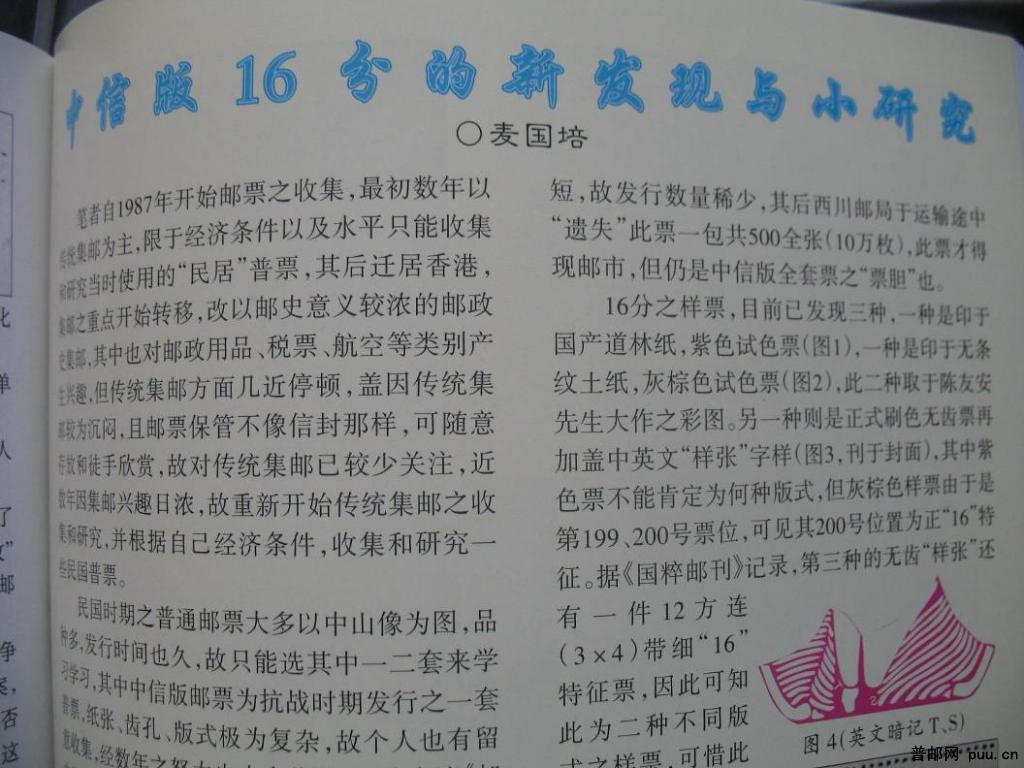 中信版 16 分的新发现与小研究
○麦国培
笔者自1987年开始邮票之收集，最初数年以
传统集邮为主，限于经济条件以及水平只能收集
和研究当时使用的“民居”普票，其后迁居香港，
集邮之重点开始转移，改以邮史意义较浓的邮政
史集邮，其中也对邮政用品、税票、航空等类别产
生兴趣，但传统集邮方面几近停顿，盖因传统集
邮较为沉闷，且邮票保管不像信封那样，可随意
存放和徒手欣赏，故对传统集邮已较少关注，近
数年因集邮兴趣日浓，故重新开始传统集邮之收
集和研究，并根据自己经济条件，收集和研究一
些民国普票。
民国时期之普通邮票大多以中山像为图，品
种多，发行时间也久，故只能选其中一二套来学
习学习，其中中信版邮票为抗战时期发行之一套
普票，纸张、齿孔、版式极为复杂，故个人也有留
意收集，经数年之努力
短，故发行数量稀少，其后西川邮局于运输途中
“遗失”此票一包共500全张（10万枚），此票才得
现邮市，但仍是中信版全套票之“票胆”也。
16分之样票，目前已发现三种，一种是印于
国产道林纸，紫色试色票（图1），一种是印于无条
纹土纸，灰棕色试色票（图2），此二种取于陈友安
先生大作之彩图。另一种则是正式刷色无齿票再
加盖中英文“样张”字样（图3，刊于封面），其中紫
色票不能肯定为何种版式，但灰棕色样票由于是
第199、200号票位，可见其200号位置为正“16”特
征。据《国粹邮刊》记录，第三种的无齿“样张”还
有一件12方连
（3×4）带细“16”
特征票，因此可知
此为二种不同版
式之样票，可惜此
图4（英文暗记T、S）
化
单
人
了
邮
争
案，
否
这
普邮网 puu.cn